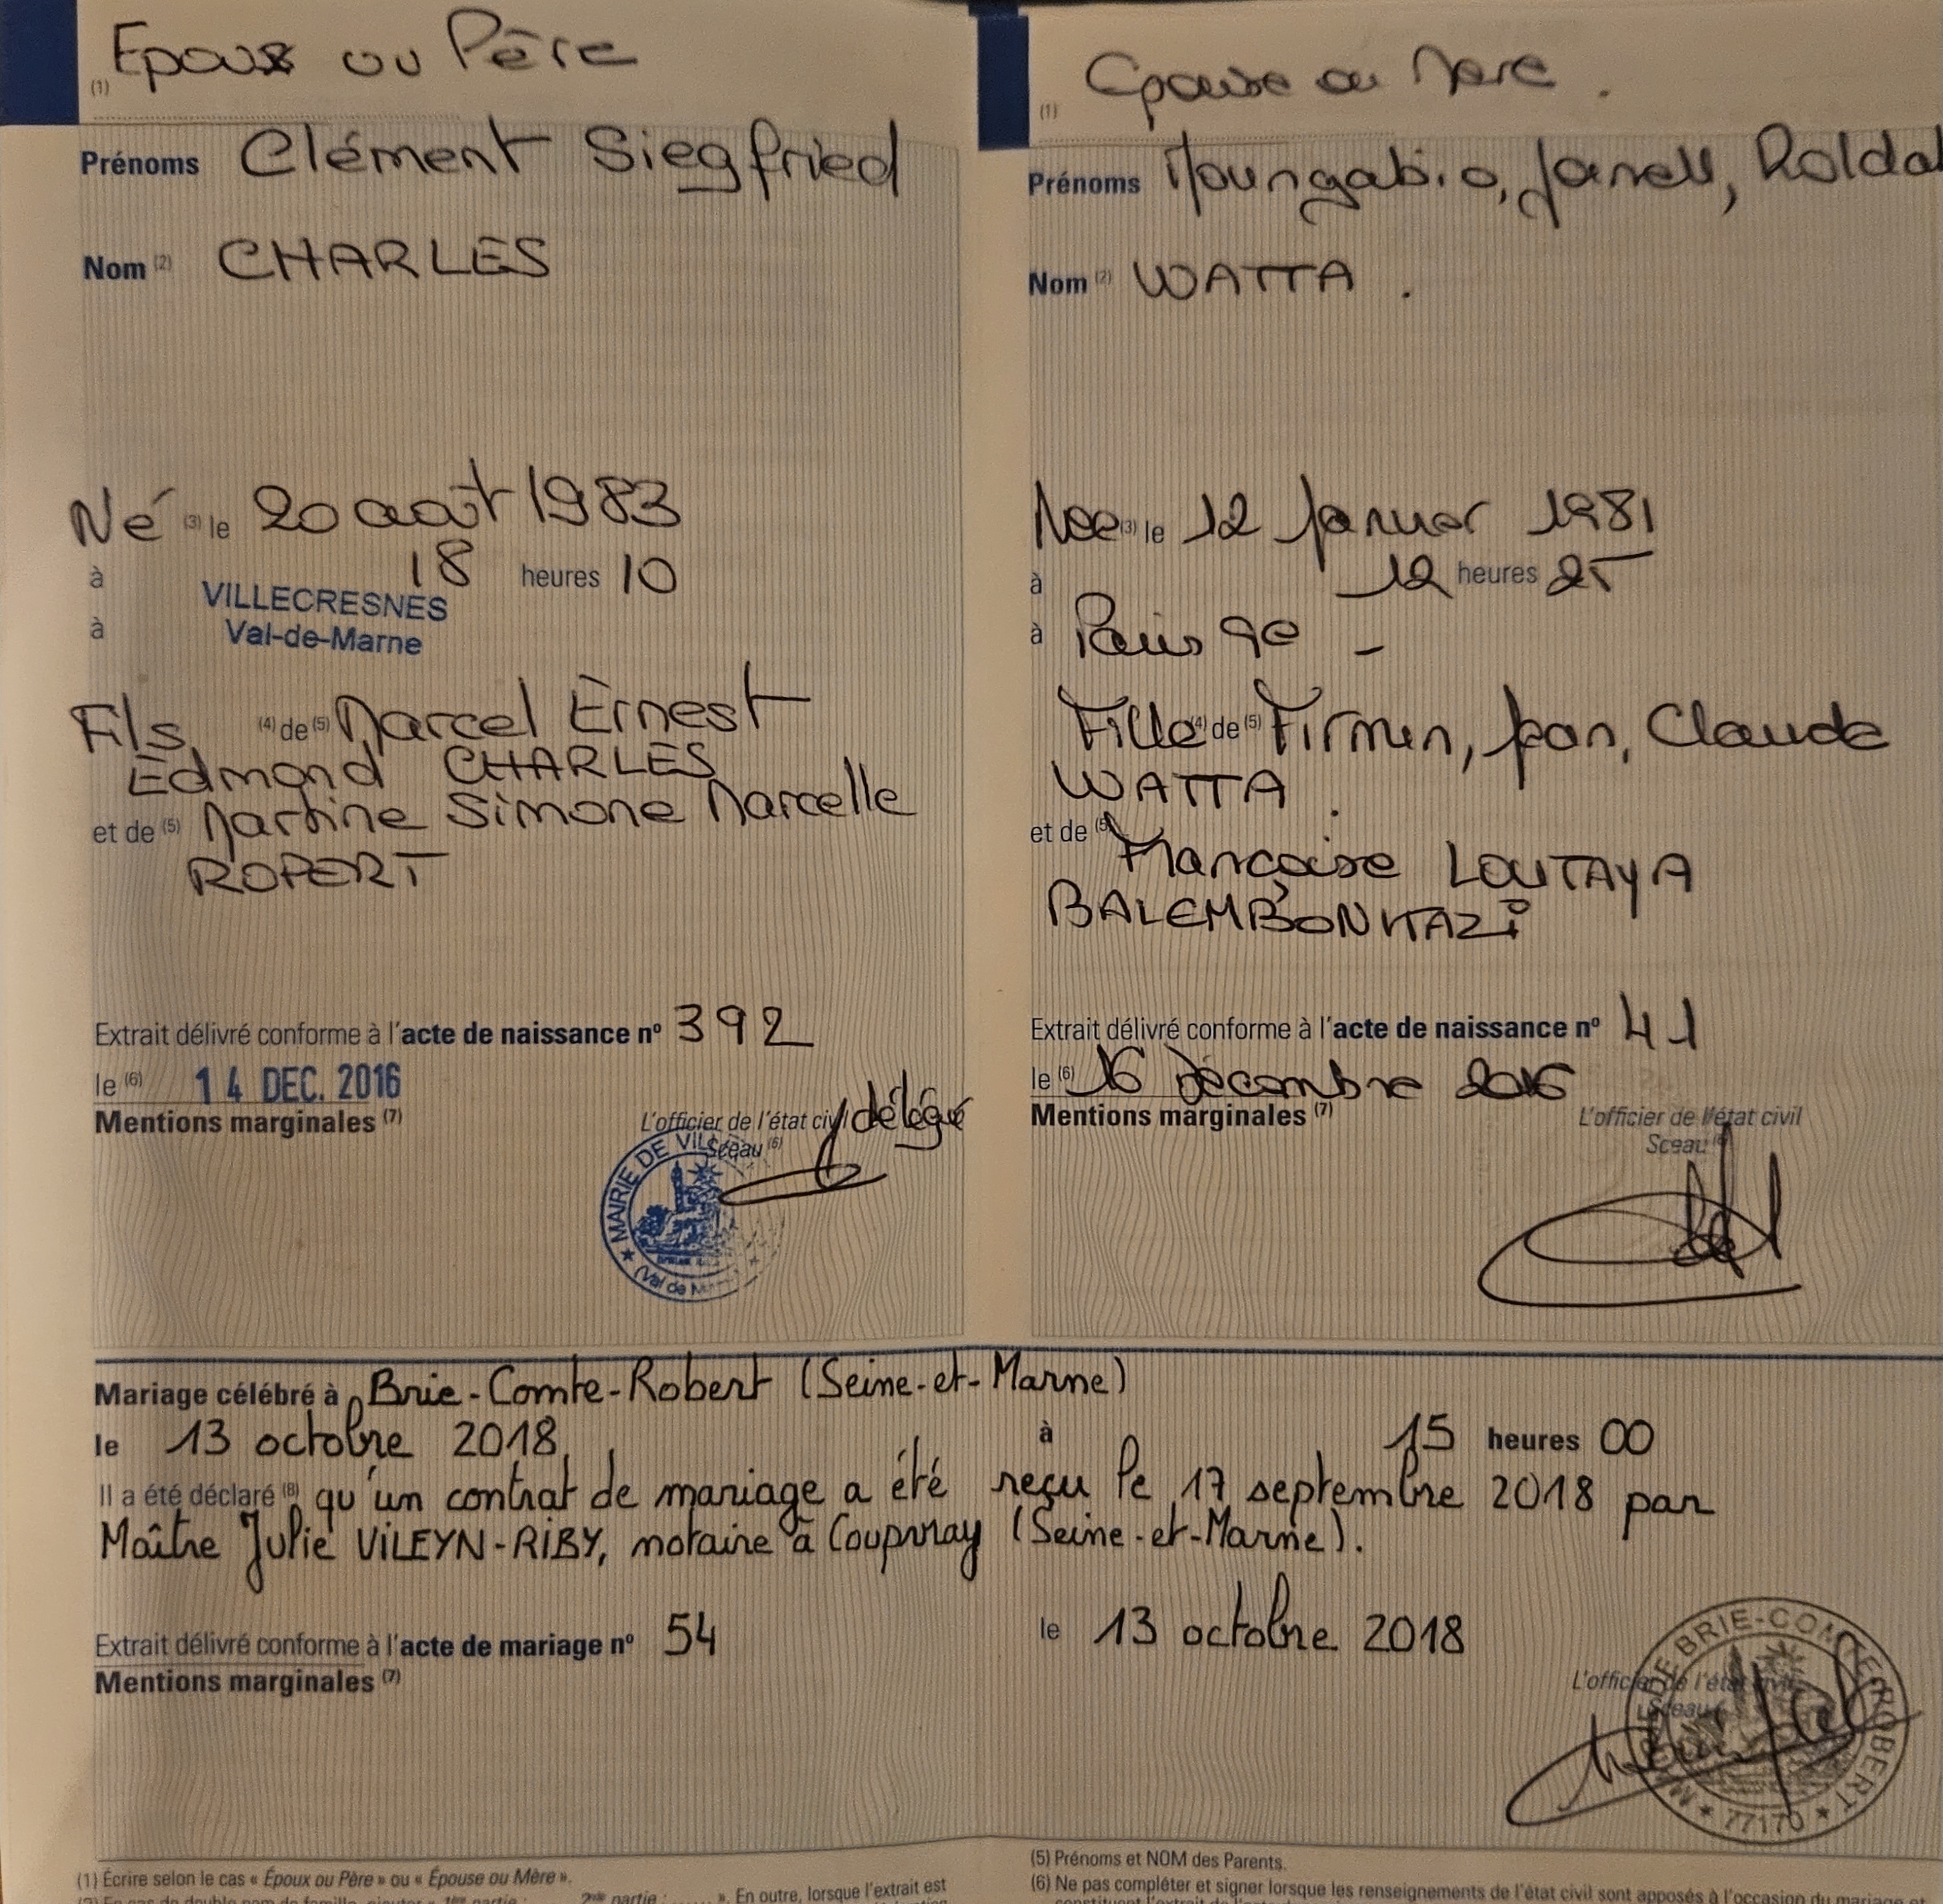 (1) Epoux ou Père
Prénoms Clément Siegfried
Nom (2) CHARLES
Né (3) le 20 août 1983
à 18 heures 10
à VILLECRESNES
Val-de-Marne
Fils (4) de (5) Marcel Ernest
Edmond CHARLES
et de (5) Martine Simone Marcelle
ROPERT
Extrait délivré conforme à l'acte de naissance nº 392
le (6) 14 DEC. 2016
Mentions marginales (7)
L'officier de l'état civil délégué
Sceau (6)
MAIRIE DE VIL
(Val de M
(1) Epouse ou Mère .
Prénoms Moungabio, Janell, Roldal
Nom (2) WATTA .
Née (3) le 12 Janvier 1981
à 12 heures 25
à Paris 9e -
Fille (4) de (5) Firmin, Jean, Claude
WATTA .
et de (5) Françoise LOUTAYA
Extrait délivré conforme à l'acte de naissance nº 41
le (6) 16 Décembre 2016
Mentions marginales (7)
L'officier de l'état civil
Sceau (6)
Mariage célébré à Brie-Comte-Robert (Seine-et-Marne)
le 13 octobre 2018 à 15 heures 00
Il a été déclaré (8) qu'un contrat de mariage a été reçu le 17 septembre 2018 par
Maître Julie VILEYN-RIBY, notaire à Coupvray (Seine-et-Marne).
Extrait délivré conforme à l'acte de mariage nº 54 le 13 octobre 2018
Mentions marginales (7)
L'officier de l'état civil
Sceau
MAIRIE DE BRIE-COMTE-ROBERT
★ 77170 ★
(1) Écrire selon le cas « Époux ou Père » ou « Épouse ou Mère ».
2ème partie : ...... ». En outre, lorsque l'extrait est
(5) Prénoms et NOM des Parents.
(6) Ne pas compléter et signer lorsque les renseignements de l'état civil sont apposés à l'occasion du mariage et